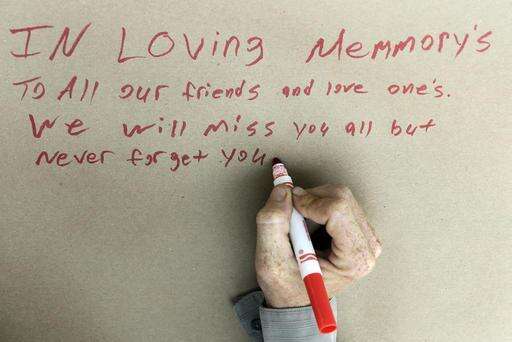 IN Loving Memmory's
To All our friends and love one's.
We will miss you all but
never forget you